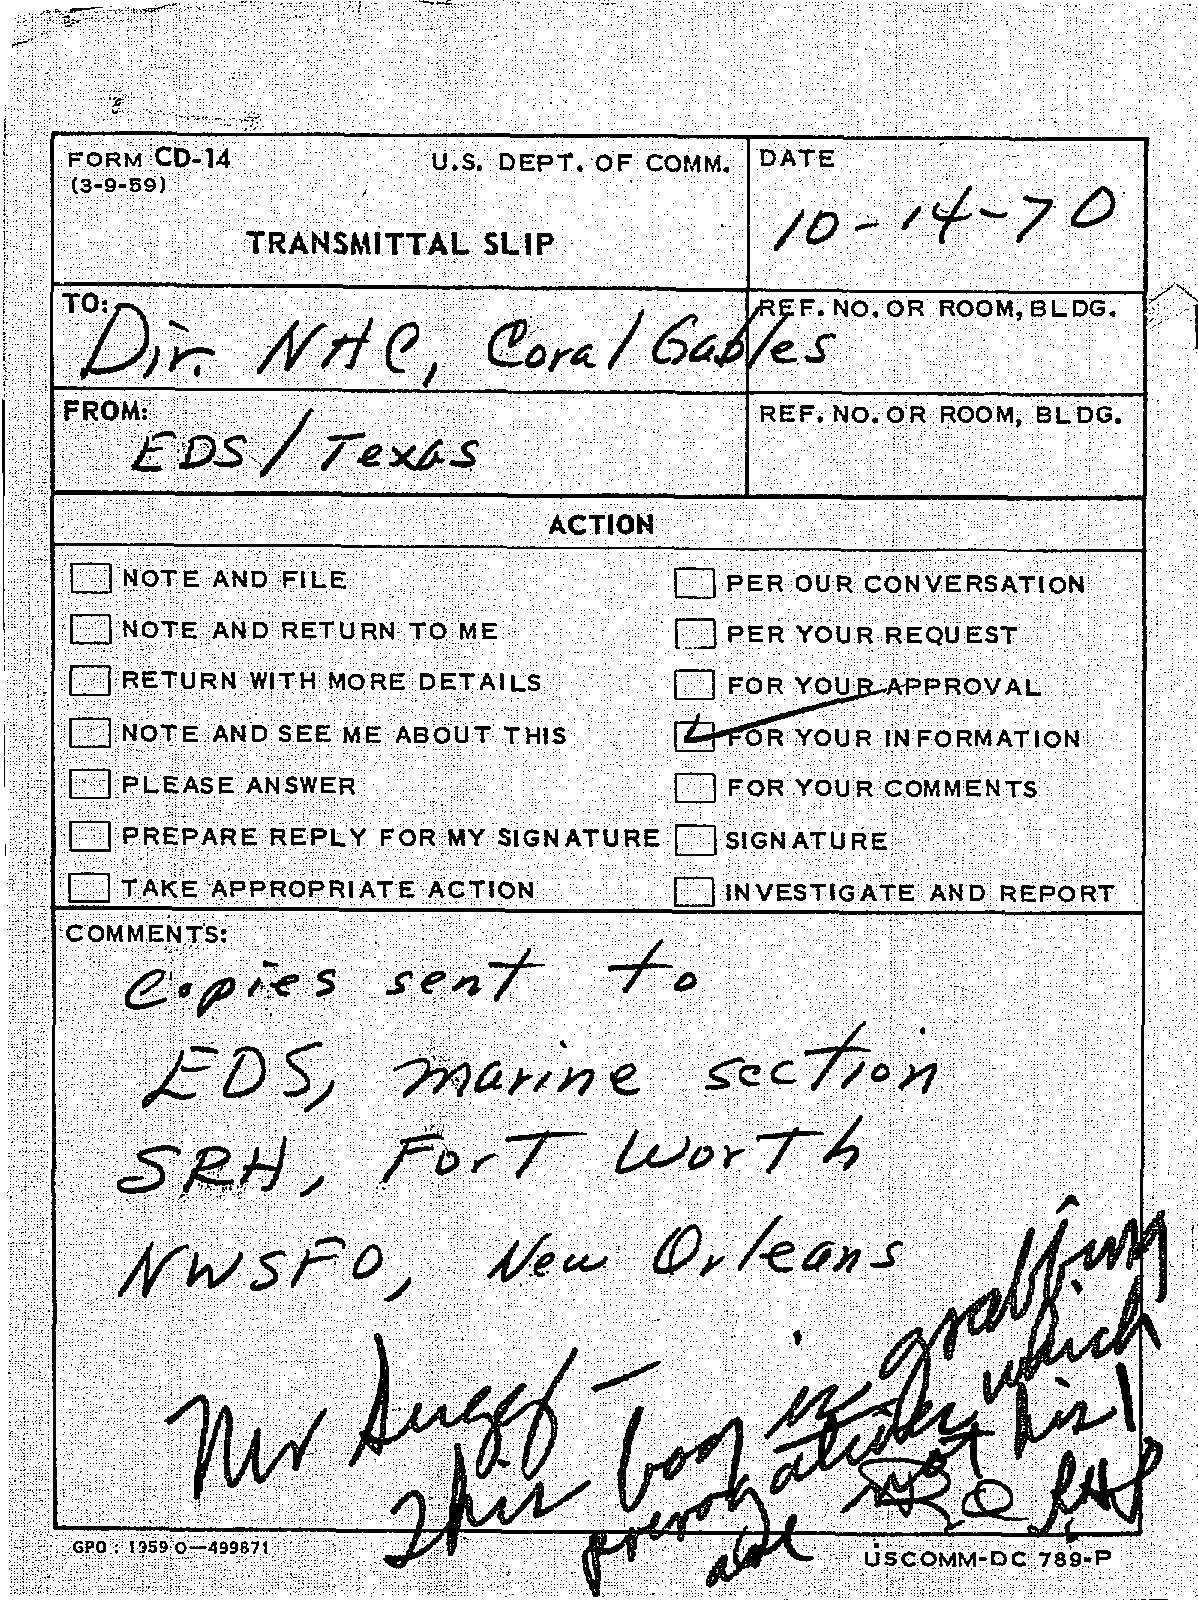 FORM CD-14 U.S. DEPT. OF COMM. DATE
(3-9-59)
10-14-70
TRANSMITTAL SLIP
TO: REF. NO. OR ROOM, BLDG.
Dir. NHC, Coral Gables
FROM: REF. NO. OR ROOM, BLDG.
EDS/Texas
ACTION
NOTE AND FILE PER OUR CONVERSATION
NOTE AND RETURN TO ME PER YOUR REQUEST
RETURN WITH MORE DETAILS FOR YOUR APPROVAL
NOTE AND SEE ME ABOUT THIS FOR YOUR INFORMATION
PLEASE ANSWER FOR YOUR COMMENTS
PREPARE REPLY FOR MY SIGNATURE SIGNATURE
TAKE APPROPRIATE ACTION INVESTIGATE AND REPORT
COMMENTS:
copies sent to
EDS, marine section
SRH, Fort Worth
NWSFO, New Orleans
Mr Sugg –
This boy is grabbing
prerogatives which
are not his!
RHS
GPO : 1959 O—499871 USCOMM-DC 789-P